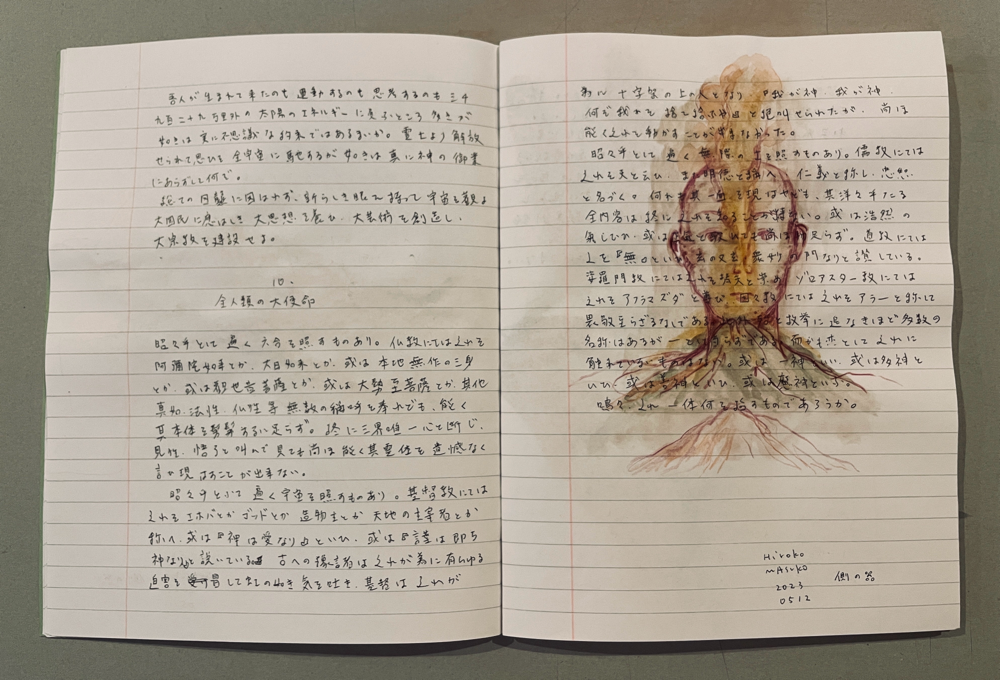 吾人が生まれて来たのも運動するのも思考するのも三千
九百二十九万里外の太陽のエネルギーに
如きは実に不思議な約束ではあるまいか。霊土より解放
せられて思ひを全宇宙に馳するが如きは真に神の御業
にあらずして何ぞ。
総ての因襲に因はれず、新らしき眼を持って宇宙を観よ
大国民に応はしき大思想を養む、大芸術を創造し、
大宗教を建設せよ。
10.
全人類の大使命
昭々乎として遍く六合を照すものあり。仏教にてはこれを
阿彌陀如来とか、大日如来とか、或は本地無作の三身
とか、或は観世音菩薩とか、或は大勢至菩薩とか、其他
真如、法性、仏性等無数の名称を奉れども、能く
其本体を髣髴するに足らず。終に三界唯一心と断じ、
見性、悟りと叫んで見ても尚ほ能く其霊体を遺憾なく
言ひ現はすことが出来ない。
昭々乎として遍く宇宙を照すものあり。基督教にては
これをエホバとかゴッドとか造物主とか天地の主宰者とか
称へ、或は『神は愛なり』といひ、或は『言葉は即ち
神なり』と説いている。古への豫言者はこれが為に有らゆる
迫害を冒して虹の如き気を吐き、基督はこれが
為に十字架の上の人となり『我が神、我が神、
何ぞ我れを捨て給ふや』と絶叫せられたが、尚ほ
能くこれを動かすことが出来なかった。
昭々乎として遍く無際の空を照すものあり。儒教にては
これを天と云ひ、また明徳と称へ、仁義と称し、忠恕
と名づく。何れも其一面を現はせども、其洋々乎たる
全内容は終にこれを知ることが難い。或は浩然の
気といひ、或は と叫んでも尚ほ足らず。道教にては
之を『無』といひ、玄の又玄、衆妙の門なりと讃している。
婆羅門教にてはこれを梵天と崇め、ゾロアスター教にては
これをアフラマズダと尊び、回々教にてはこれをアラーと称して
畏敬至らざるなしである。 と枚挙に遑なきほど多数の
名称はあるが、 而かも恋としてこれに
触れている 。或は一神といひ、或は多神と
いひ、或は善神といひ、或は魔神といふ。
嗚々、これ一体何を指すものであろうか。
Hiroko
mAsuko
2023
0512
側の器